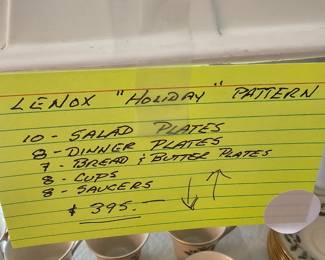 LENOX "HOLIDAY" PATTERN
10 - SALAD PLATES
8 - DINNER PLATES
7 - BREAD & BUTTER PLATES
8 - CUPS
8 - SAUCERS
$ 395.—